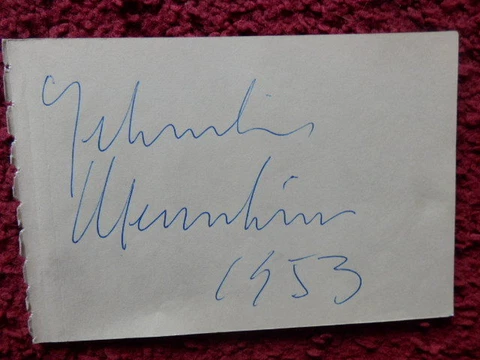 Yehudi
Menuhin
1953